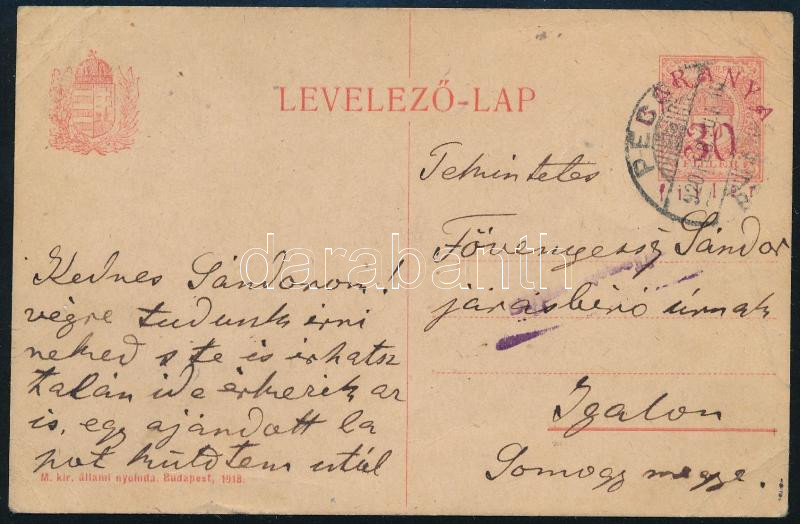 LEVELEZŐ-LAP
BARANYA
30
fillér
PECS
920
Tekintetes
Fövenyessy Sándor
járásbíró úrnak
Igalon
Somogy megye.
Kedves Sándorom!
végre tudunk írni
neked s te is írhatsz
talán ide érkezik az
is, egy ajándott la
pot küldtem utál
M. kir. állami nyomda. Budapest, 1918.
darabanth